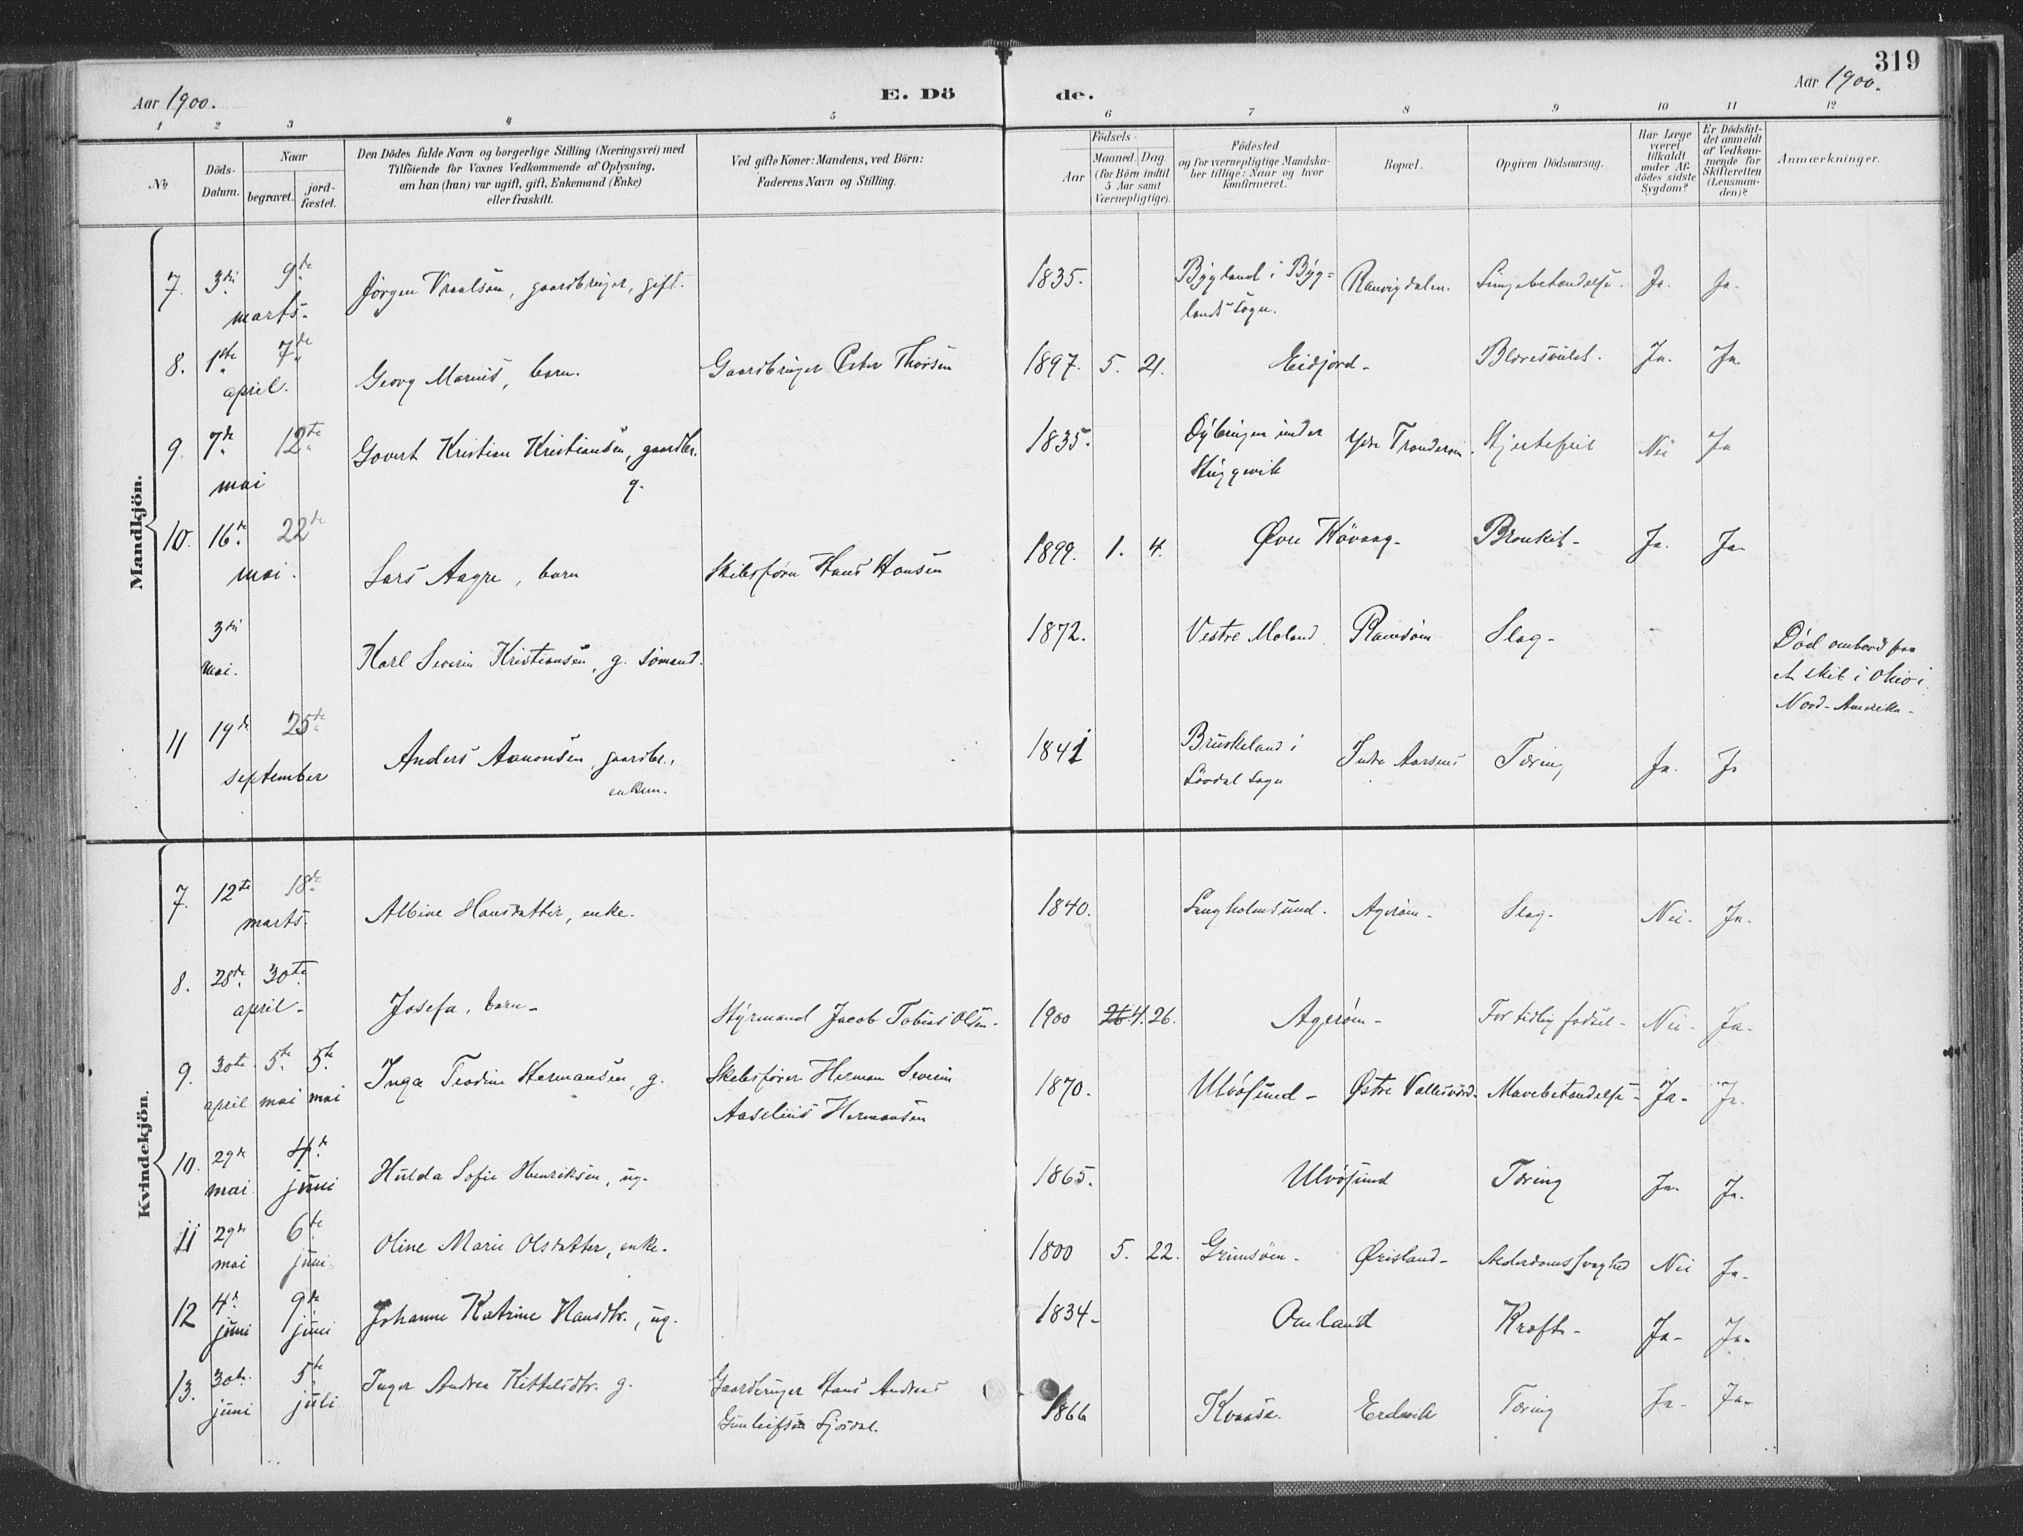 319
Aar 1900.
E. Dö
de.
Aar 1900.
1 2 3 4 5 6 7 8 9 10 11 12
№
Döds-
Datum.
Naar
begravet.
jord-
fæstet.
Den Dödes fulde Navn og borgerlige Stilling (Næringsvei) med
Tilföiende for Voxnes Vedkommende af Oplysning,
om han (hun) var ugift, gift, Enkemand (Enke)
eller fraskilt.
Ved gifte Koner: Mandens, ved Börn:
Faderens Navn og Stilling.
Födsels-
Aar
Maaned. Dag
(for Börn indtil
5 Aar samt
Værnepligtige).
Födested
og for værnepligtige Mandska-
ber tillige: Naar og hvor
konfirmeret.
Bopæl.
Opgiven Dödsaarsag.
Har Læge
været
tilkaldt
under Af-
dödes sidste
Sygdom?
Er Dödsfal-
det anmeldt
af Vedkom-
mende for
Skifteretten
(Lensman-
den)?
Anmærkninger.
Mandkjön.
7. 3di 9de Jörgen Vraalsen, gaardbruger, gift. 1835. Bygland i Byg- Lungebetændelse. Ja. Ja.
marts. lands sogn.
8. 1ste 7de Georg Marius, barn. Gaardbruger Peter Thorsen 1897. 5. 21. Eidjord Ja. Ja.
april.
9. 7de 12te Govert Kristian Kristiansen, gaardbr. 1835. under Ydre Hjertefeil Nei Ja
mai g.
10. 16de 22de Lars Aagre, barn Skibsförer Hans Hansen 1899. 1. 4. Øvre Kövaag Bronkit Ja. Ja
mai.
3di Karl Severin Kristiansen, g. sömand. 1872. Vestre Moland Ramsöen Slag Död ombord paa
mai. et skib i Ohio i
Nord-Amerika
11 19de 25de Anders Aanonsen, gaardbr., 1841 i Indre Aarsnes Tæring Ja. Ja
september enkem. sogn
Kvindekjön.
7. 12te 18de Albine Hansdatter, enke. 1840. Lyngholmsund. Ageröen Slag Nei Ja
marts.
8. 28de 30te Josefa, barn Styrmand Jacob Tobias Olsen 1900 4. 26. Ageröen For tidlig födsel Nei Ja
april
9. 30te 5te 5te Inga Teodine Hermansen, g. Skibsförer Herman Severin 1870. Ulvösund Østre Vallesværd Mavebetændelse Ja Ja
april mai mai Aaselius Hermansen
10. 29de 4de Hulda Sofie Henriksen, ug. 1865. Ulvösund Tæring Ja Ja.
mai juni
11 29de 6te Oline Marie Olsdatter, enke. 1800 5. 22. Grimsöen Ørisland Alderdomssvaghed Nei Ja
mai juni
12 4de 9de Johanne Katrine Hansdtr., ug. 1834 Omland Kræft Ja Ja
juni juni
13. 30te 5te Inger Andrea Kittelsdtr. g. Gaardbruger Hans Andreas 1866 Kvaase. Eidevik Tæring Ja Ja
juni juli Gunleifsen